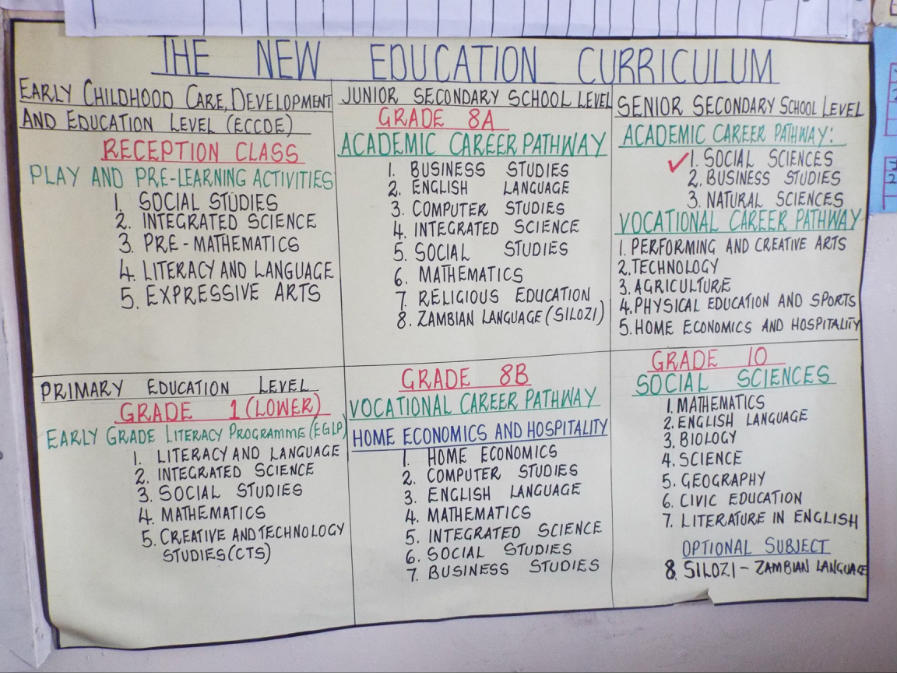 THE NEW EDUCATION CURRICULUM
EARLY CHILDHOOD CARE, DEVELOPMENT
AND EDUCATION LEVEL (ECCDE)
RECEPTION CLASS
PLAY AND PRE-LEARNING ACTIVITIES
1. SOCIAL STUDIES
2. INTEGRATED SCIENCE
3. PRE-MATHEMATICS
4. LITERACY AND LANGUAGE
5. EXPRESSIVE ARTS
JUNIOR SECONDARY SCHOOL LEVEL
GRADE 8A
ACADEMIC CAREER PATHWAY
1. BUSINESS STUDIES
2. ENGLISH LANGUAGE
3. COMPUTER STUDIES
4. INTEGRATED SCIENCE
5. SOCIAL STUDIES
6. MATHEMATICS
7. RELIGIOUS EDUCATION
8. ZAMBIAN LANGUAGE (SILOZI)
SENIOR SECONDARY SCHOOL LEVEL
ACADEMIC CAREER PATHWAY:
✓1. SOCIAL SCIENCES
2. BUSINESS STUDIES
3. NATURAL SCIENCES
VOCATIONAL CAREER PATHWAY
1. PERFORMING AND CREATIVE ARTS
2. TECHNOLOGY
3. AGRICULTURE
4. PHYSICAL EDUCATION AND SPORTS
5. HOME ECONOMICS AND HOSPITALITY
PRIMARY EDUCATION LEVEL
GRADE 1 (LOWER)
EARLY GRADE LITERACY PROGRAMME (EGLP)
1. LITERACY AND LANGUAGE
2. INTEGRATED SCIENCE
3. SOCIAL STUDIES
4. MATHEMATICS
5. CREATIVE AND TECHNOLOGY
STUDIES (CTS)
GRADE 8B
VOCATIONAL CAREER PATHWAY
HOME ECONOMICS AND HOSPITALITY
1. HOME ECONOMICS
2. COMPUTER STUDIES
3. ENGLISH LANGUAGE
4. MATHEMATICS
5. INTEGRATED SCIENCE
6. SOCIAL STUDIES
7. BUSINESS STUDIES
GRADE 10
SOCIAL SCIENCES
1. MATHEMATICS
2. ENGLISH LANGUAGE
3. BIOLOGY
4. SCIENCE
5. GEOGRAPHY
6. CIVIC EDUCATION
7. LITERATURE IN ENGLISH
OPTIONAL SUBJECT
8. SILOZI - ZAMBIAN LANGUAGE